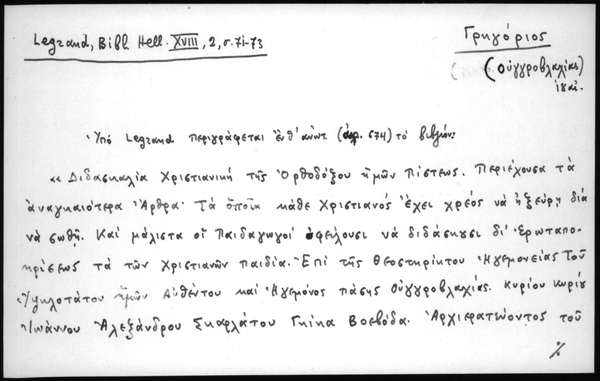 Legrand, Bibl Hell. XVIII, 2, σ. 71-73
Γρηγόριος
(Οὐγγροβλαχίας)
ιηαἰ.
Ὑπό Legrand περιγράφεται ἔνθ' ἀνωτ. (ἀρ. 674) τό βιβλίον:
«Διδασκαλία Χριστιανική τῆς Ὀρθοδόξου ἡμῶν Πίστεως. Περιέχουσα τά
ἀναγκαιότερα Ἄρθρα· Τά ὁποῖα κάθε Χριστιανός ἔχει χρέος νά ἠξεύρῃ διά
νά σωθῇ. Καί μάλιστα οἱ Παιδαγωγοί ὀφείλουσι νά διδάσκωσι δι' Ἐρωταπο-
κρίσεως τά τῶν Χριστιανῶν παιδία. - Ἐπί τῆς θεοστηρίκτου Ἡγεμονείας Τοῦ
Ὑψηλοτάτου ἡμῶν Αὐθέντου καί Ἡγεμόνος πάσης Οὐγγροβλαχίας. Κυρίου κυρίου
Ἰωάννου Ἀλεξάνδρου Σκαρλάτου Γκίκα Βοεβόδα. Ἀρχιερατεύοντος τοῦ
%